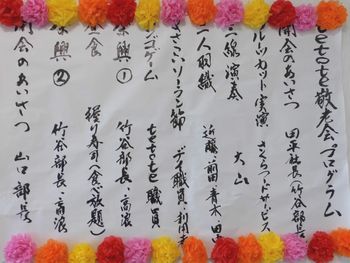 ともともと敬老会プログラム
開会のあいさつ 田平社長(竹谷部長
フルーツカット実演 さくらフードサービス
三線演奏 大山
二人羽織 近藤・前田 青木・田
よさこいソーラン節 デイ職員・利用者
ビンゴゲーム ともともと職員
余興① 竹谷部長・高浪
昼食 握り寿司(食べ放題)
余興② 竹谷部長・高浪
閉会のあいさつ 山口部長